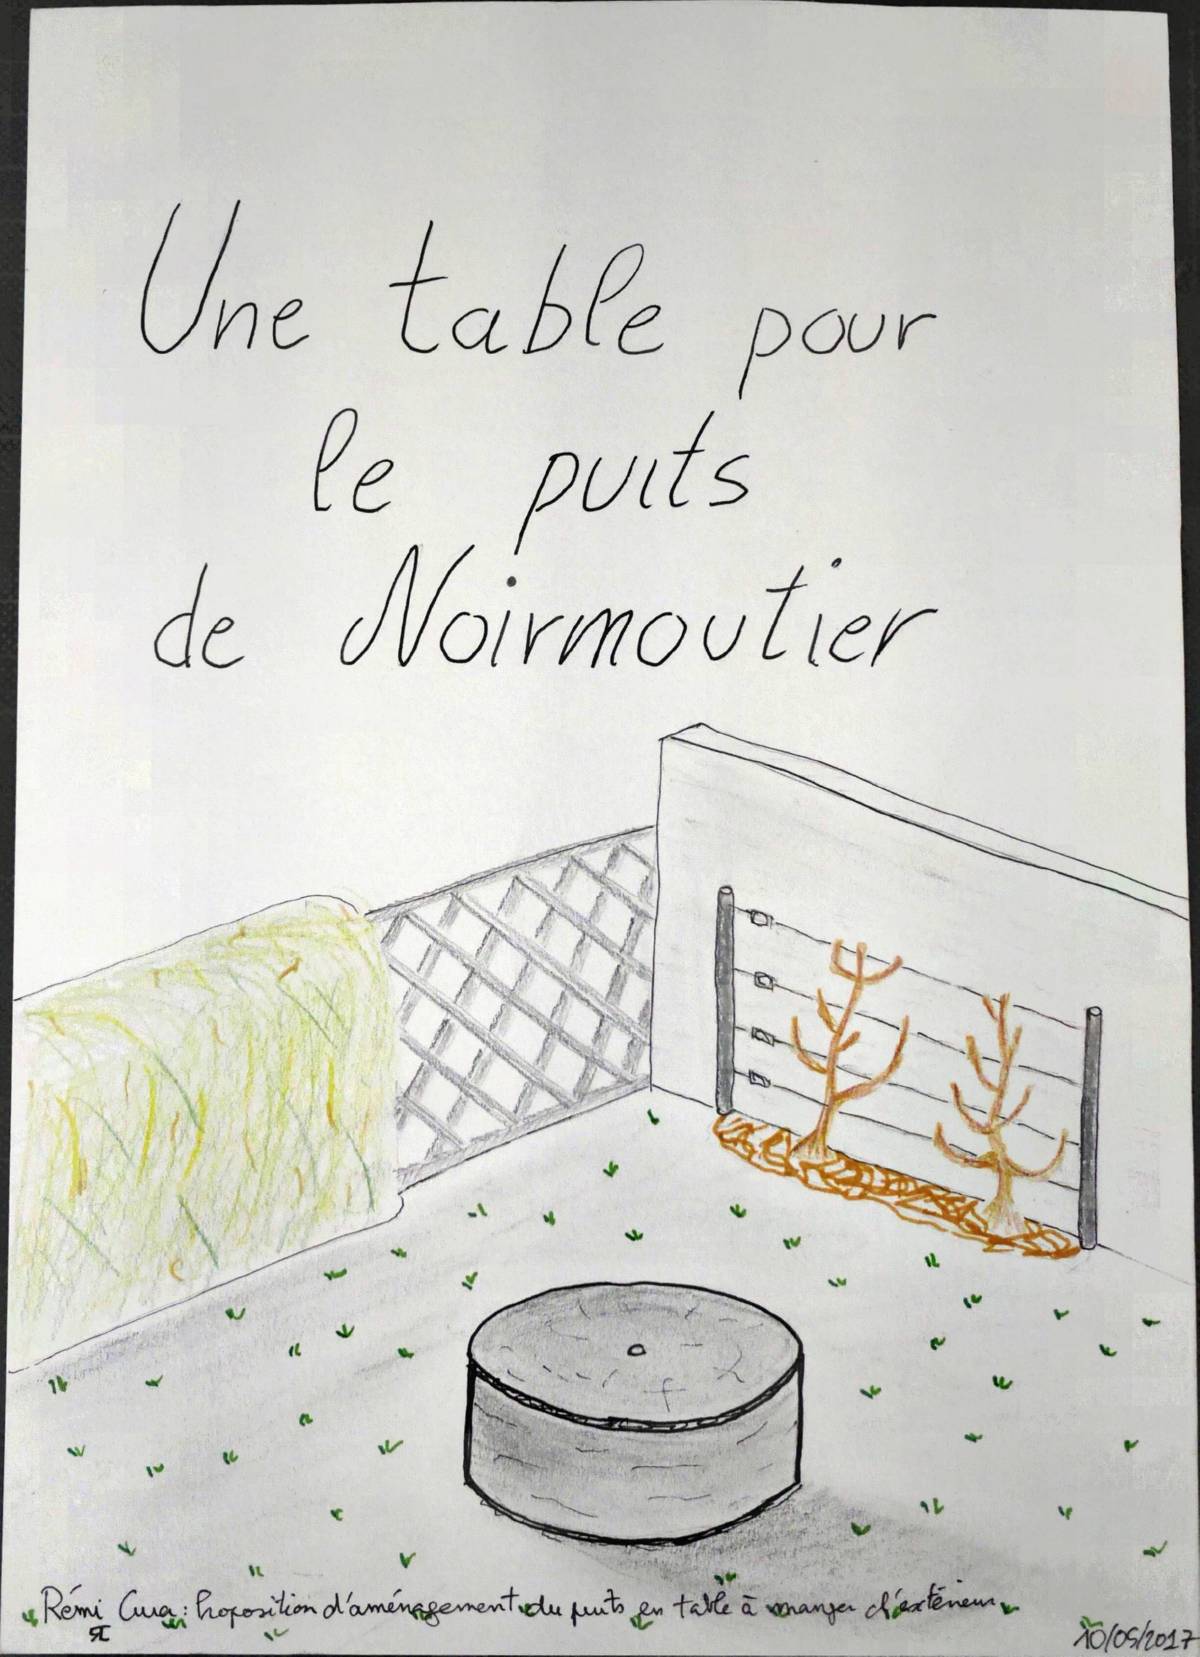 Une table pour
le puits
de Noirmoutier
Rémi Cura : Proposition d'aménagement du puits en table à manger d'extérieur
10/05/2017